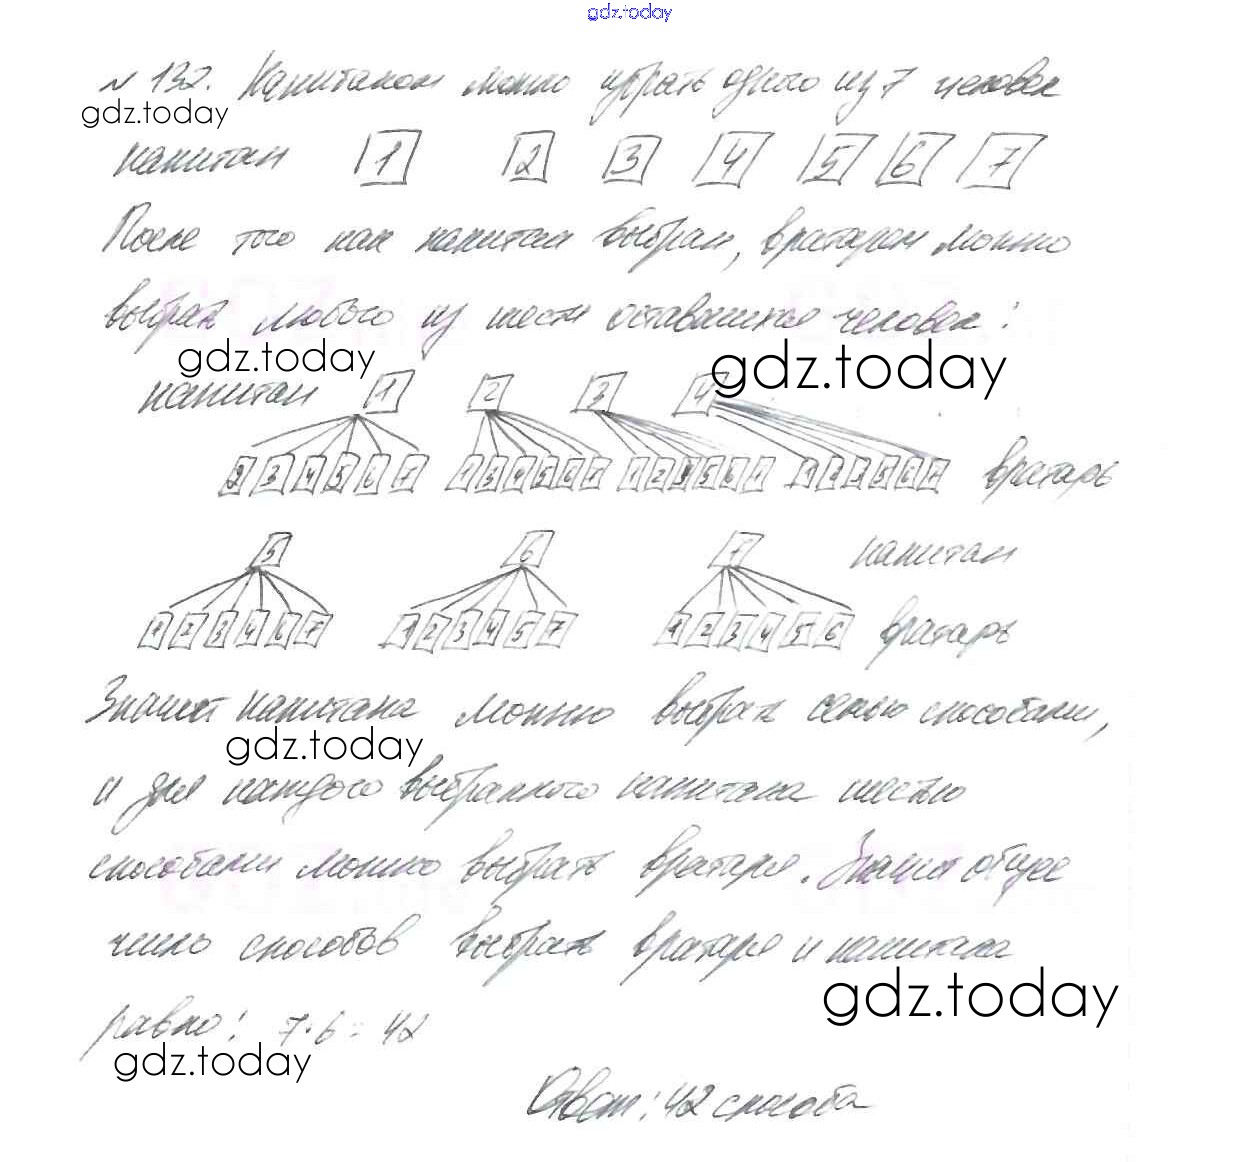 gdz.today
№ 132. Капитаном можно избрать одного из 7 человек
gdz.today
капитан 1 2 3 4 5 6 7
После того как капитан выбран, вратарем можно
выбрать любого из шести оставшихся человек:
gdz.today gdz.today
капитан 1 2 3 4
2 3 4 5 6 7 1 3 4 5 6 7 1 2 4 5 6 7 1 2 3 5 6 7 вратарь
5 6 7 капитан
1 2 3 4 6 7 1 2 3 4 5 7 1 2 3 4 5 6 вратарь
Значит капитана можно выбрать семью способами,
gdz.today
и для каждого выбранного капитана шестью
способами можно выбрать вратаря. Значит общее
число способов выбрать вратаря и капитана
gdz.today
равно: 7·6=42
gdz.today
Ответ: 42 способа